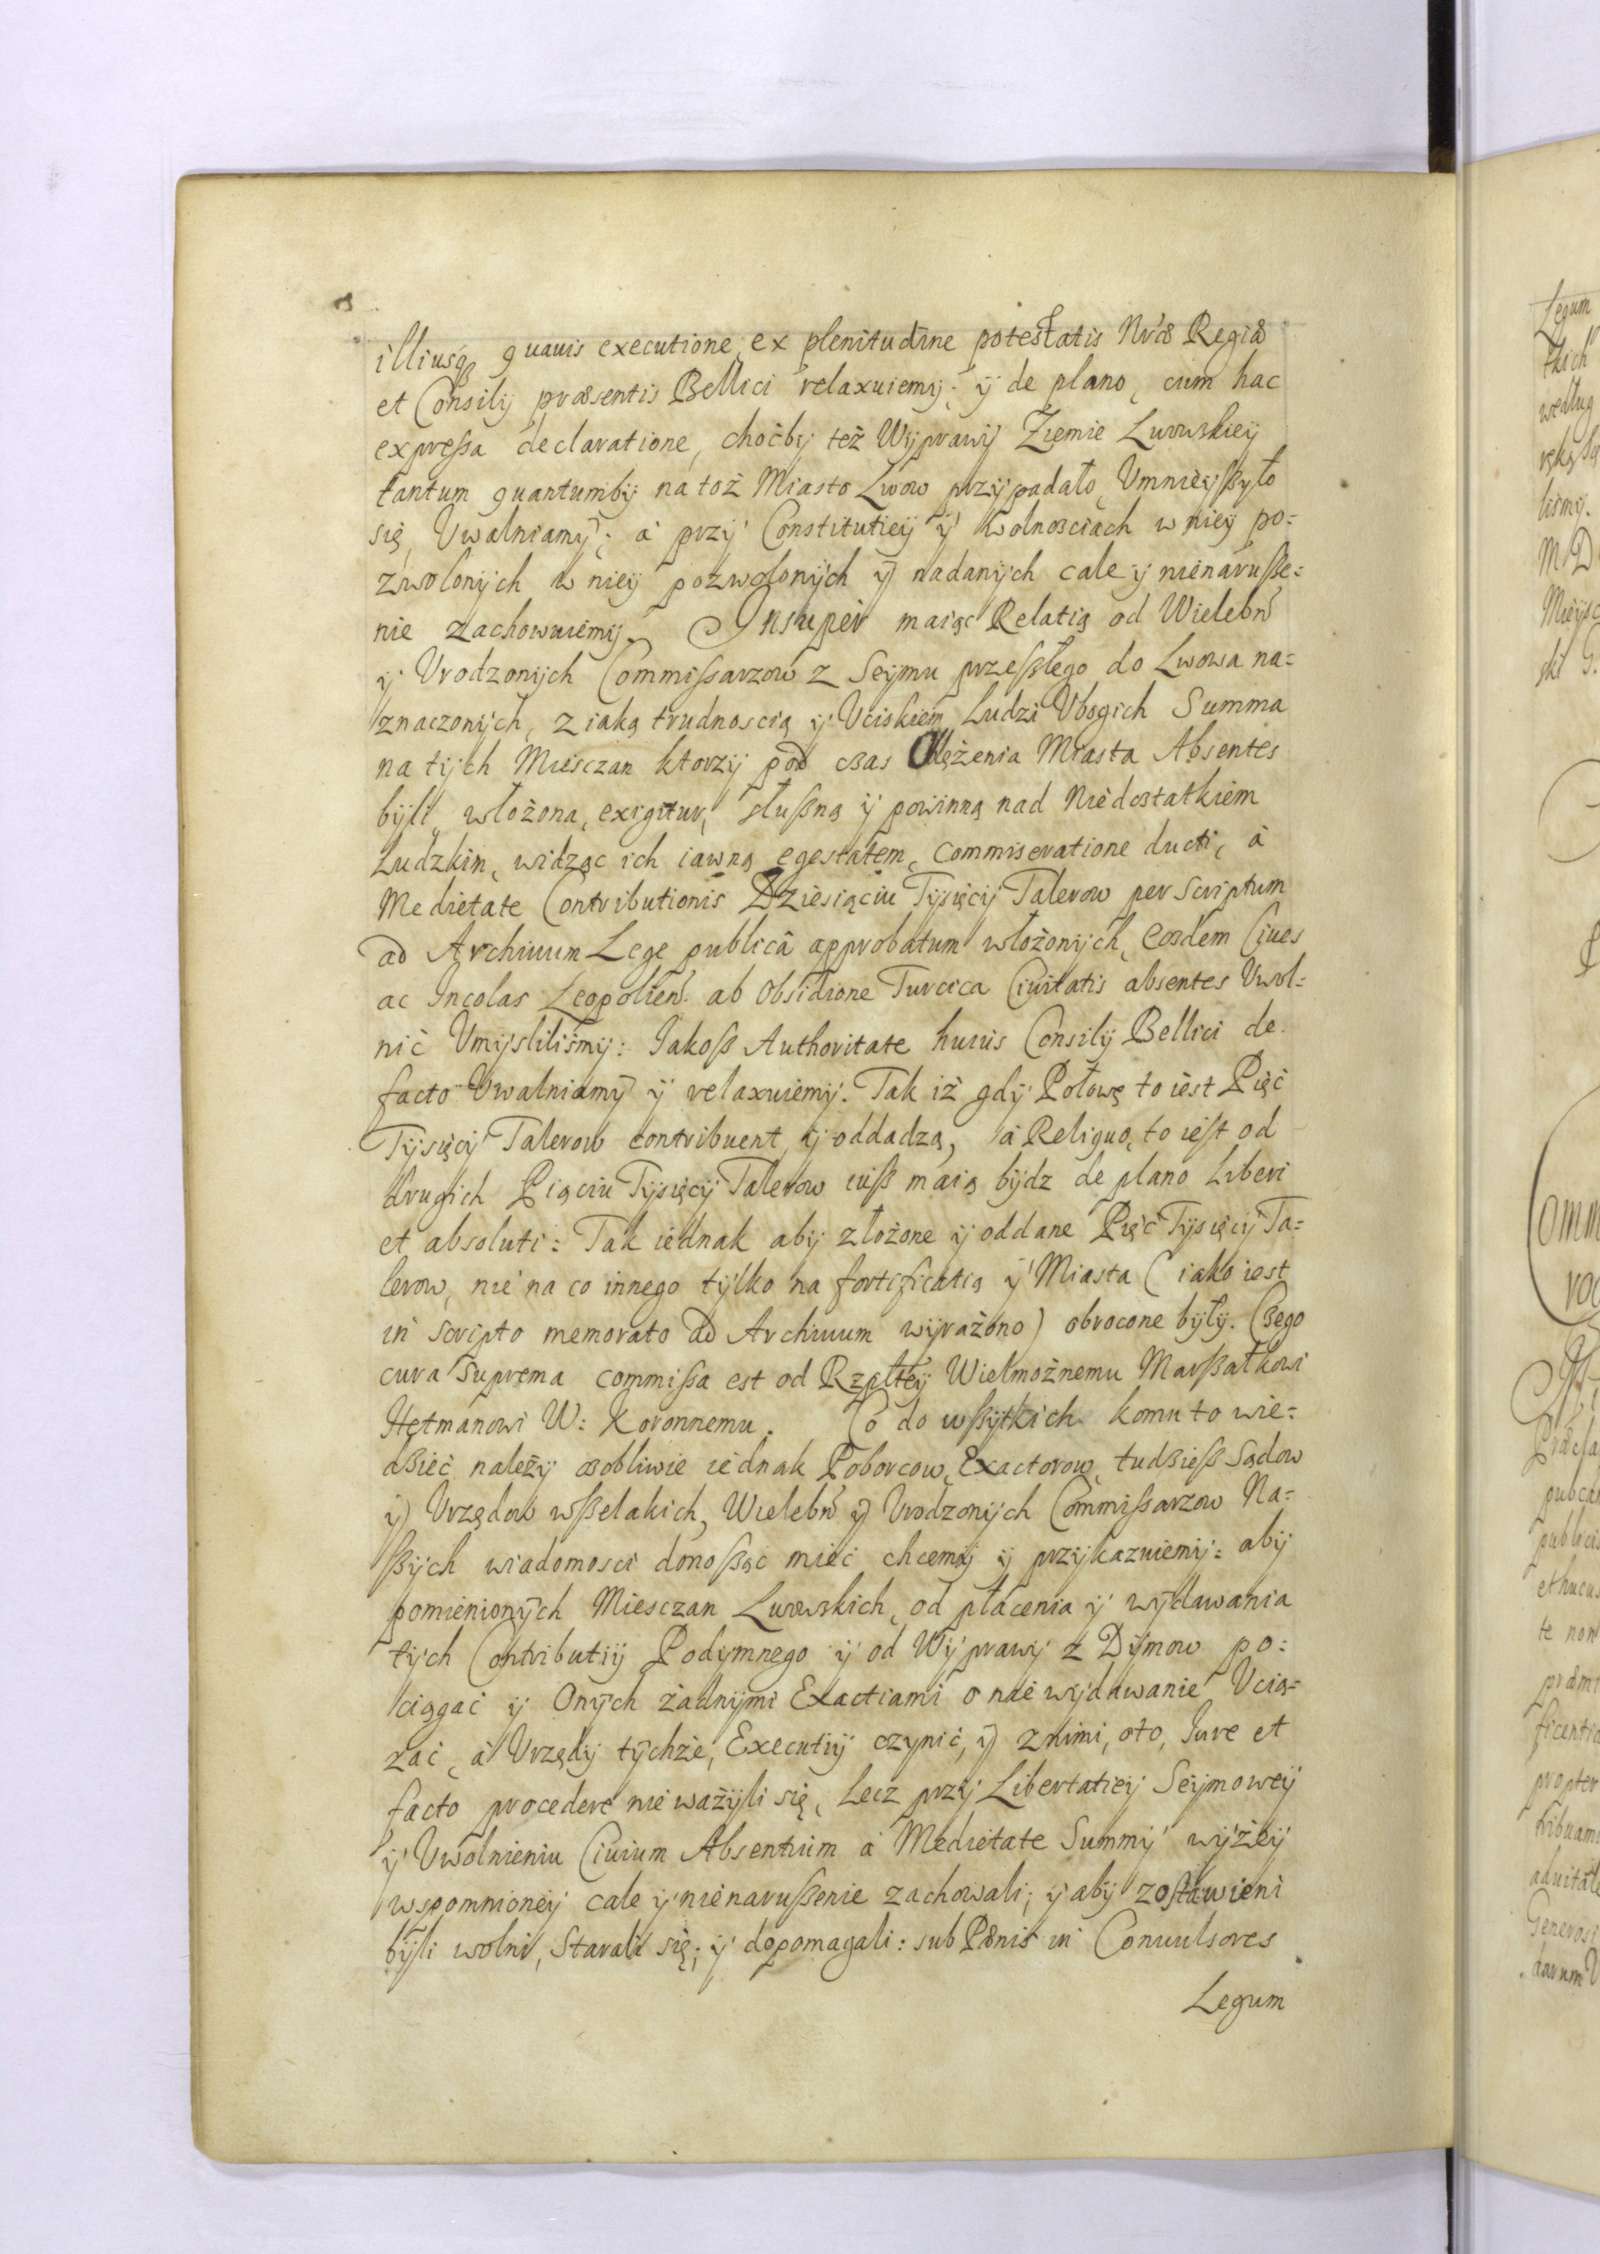 illiusq quauis executione, ex plenitudine potestatis Nræ Regiæ
et Consilÿ præsentis Bellici relaxuiemÿ; ÿ de plano, cum hac
expreßa declaratione, choćbÿ też Wÿprawÿ Ziemie Lwowskieÿ
tantum quantumbÿ na toż Miasto Lwow przÿpadało, Vmnieÿßÿło
się, Vwalniamÿ; á przÿ Constitutieÿ ÿ wolnosciach w nieÿ po=
zwolonÿch w nieÿ pozwolonÿch ÿ nadanÿch cale ÿ nienaruße=
nie zachowuiemÿ. Insuper maiąc Relatią od Wielebń
ÿ Vrodzonÿch Commißarzow z Seÿmu przeszłego do Lwowa na=
znaczonÿch, z iaką trudnoscią ÿ Vciskiem Ludzi Vbogich Summa
na tÿch Miesczan ktorzÿ pod czas Oblężenia Miasta Absentes
bÿli, włożona, exigitur, słußną ÿ powinną nad Niedostatkiem
Ludzkim, widząc ich iawną egestatem, commiseratione ducti, á
Medietate Contributionis Dziesiąciu Tÿsięcÿ Talerow per Scriptum
ad Archiuum Lege publicâ approbatum włożonÿch, eosdem Ciues
ac Incolas Leopolień ab Obsidione Turcica Ciuitatis absentes Vwol=
nić Vmÿslilismÿ: Jakoß Authoritate huius Consilÿ Bellici de
facto Vwalniamÿ ÿ relaxuiemÿ. Tak iż gdÿ Połowę to iest Pięć
Tÿsięcÿ Talerow contribuent ÿ oddadzą, á Reliquo, to iest od
drugich Piąciu Tÿsięcÿ Talerow iuß maią bÿdz de plano Liberi
et absoluti: Tak iednak abÿ złożone ÿ oddane Pięć Tÿsięcÿ Ta=
lerow, nie na co innego tÿlko na fortificatią ÿ Miasta (iako iest
in scripto memorato ad Archiuum wÿrażono) obrocone bÿłÿ. Czego
cura Suprema commißa est od Rzpłteÿ Wielmożnemu Marßałkowi
Hetmanowi W: Koronnemu. Co do wßÿtkich komu to wie=
dzieć należÿ osobliwie iednak Poborcow, Exactorow, tudzieß Sądow
ÿ Vrzędow wßelakich, Wielebń ÿ Vrodzonÿch Commißarzow Na=
ßÿch wiadomosci donoßąc mieć chcemÿ ÿ przÿkazuiemÿ: abÿ
pomienionÿch Miesczan Lwowskich, od płacenia ÿ wÿdawania
tÿch Contributiÿ Podymnego ÿ od Wÿprawÿ z Dÿmow po=
ciągać ÿ Onÿch żadnÿmi Exactiami o nie wÿdawanie Vcią=
zać, á Vrzędÿ tÿchże, Executiÿ czynić, ÿ z nimi, oto, Iure et
facto procedere nie ważÿli się, Lecz przÿ Libertatieÿ Seÿmoweÿ
ÿ Vwolnieniu Ciuium Absentium á Medietate Summÿ wÿżeÿ
wspomnioneÿ cale ÿ nienarußenie zachowali; ÿ abÿ zostawieni
bÿli wolni, Starali się; ÿ dopomagali: sub Pænis in Conuulsores
Legum